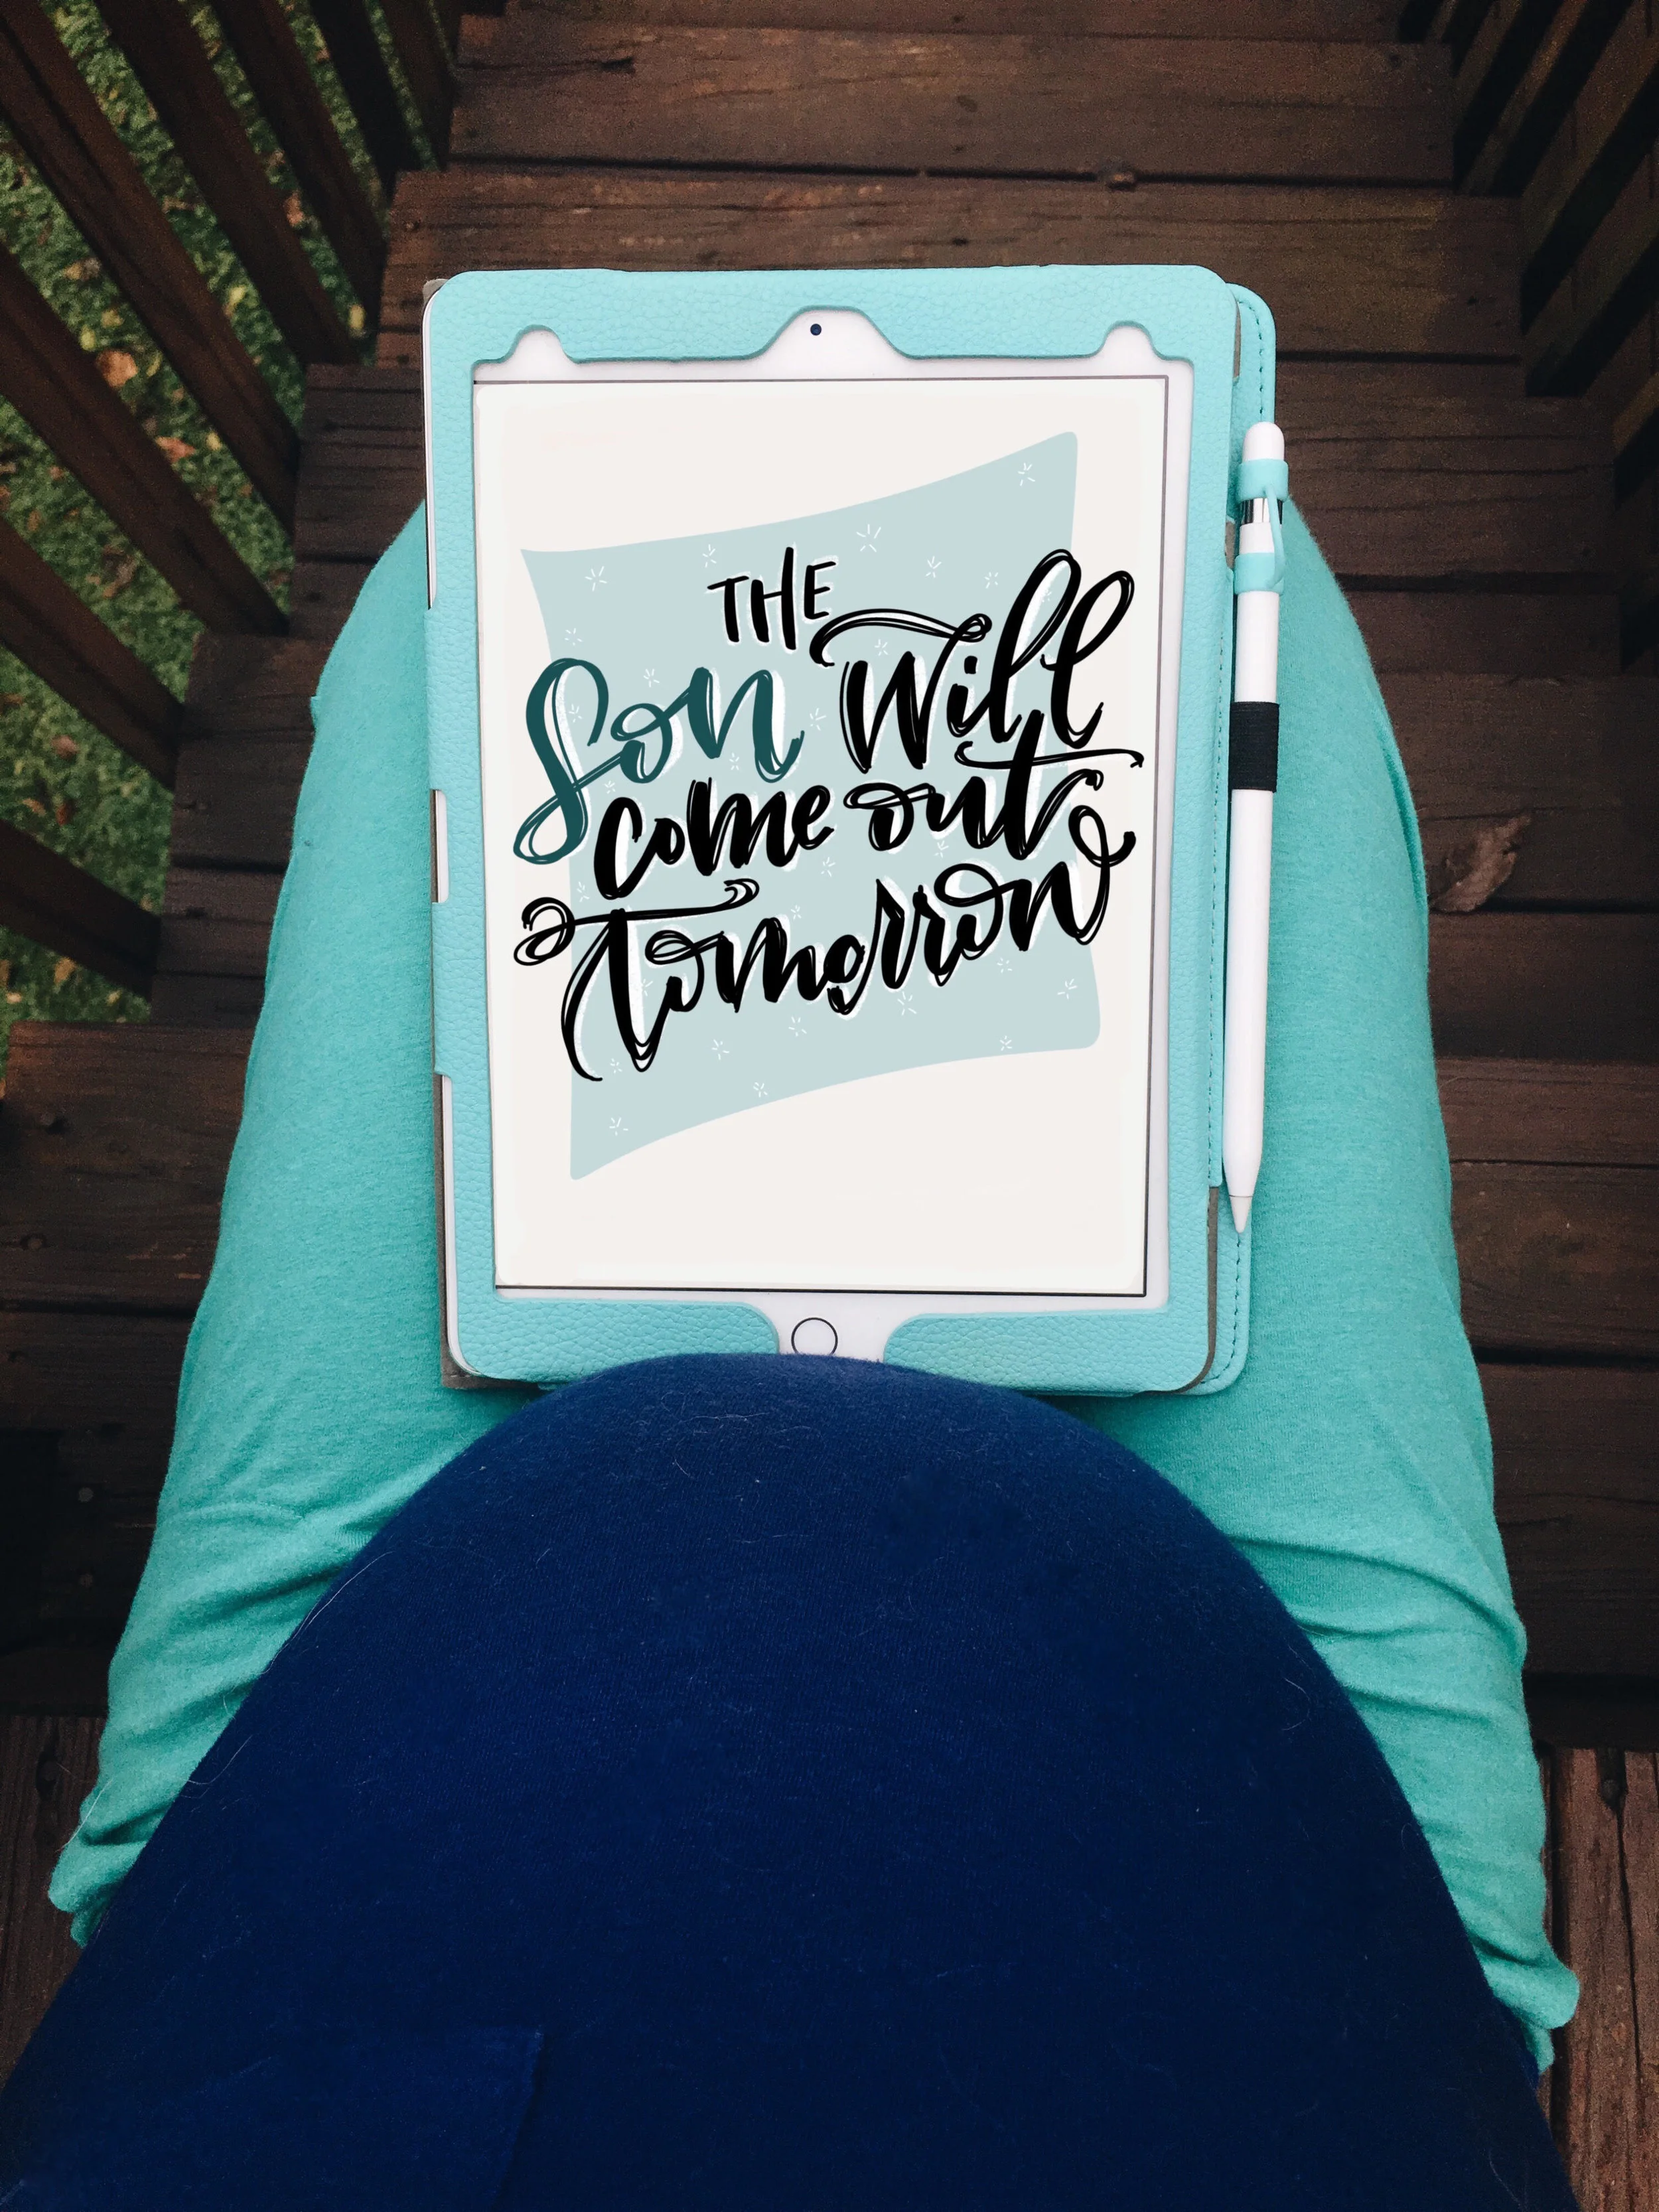 THE
Son Will
come out
tomorrow